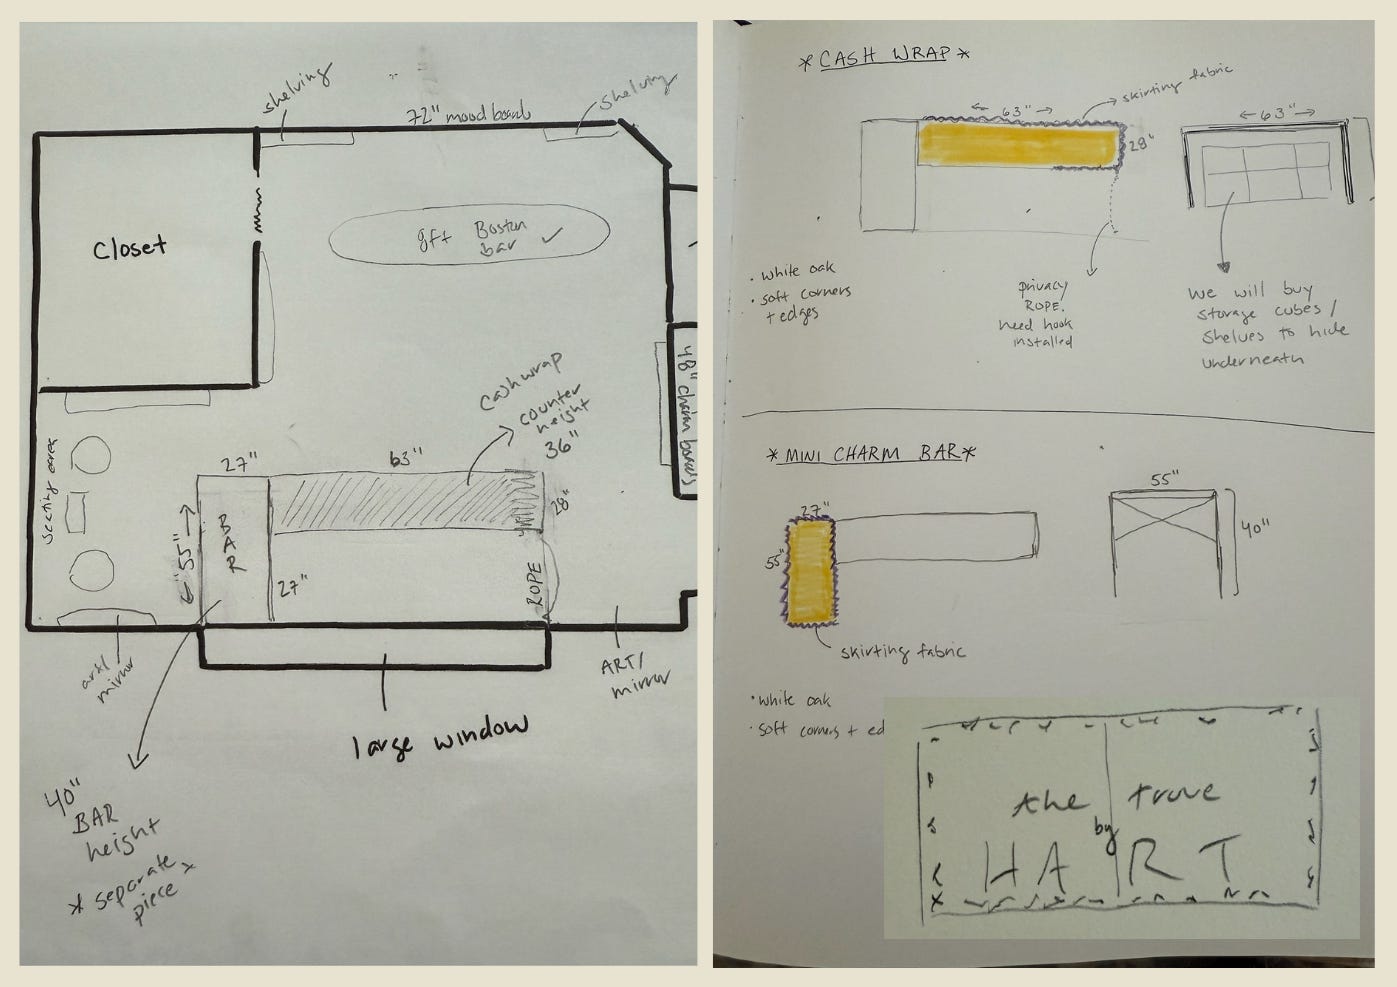 shelving
72" mood board
shelving
Closet
gft Boston
bar ✓
48" charm boards
Cashwrap
counter
height
36"
Seating area
27"
63"
28"
← 55" →
BAR
27"
ROPE
art/
mirror
ART/
mirror
large window
40"
BAR
height
* separate *
piece
* CASH WRAP *
← 63" →
skirting fabric
28"
← 63" →
• white oak
• soft corners
+ edges
privacy
ROPE.
need hook
installed
We will buy
storage cubes /
shelves to hide
underneath
* MINI CHARM BAR *
27"
55"
55"
40"
skirting fabric
• white oak
• soft corners + ed
the trove
by
HART